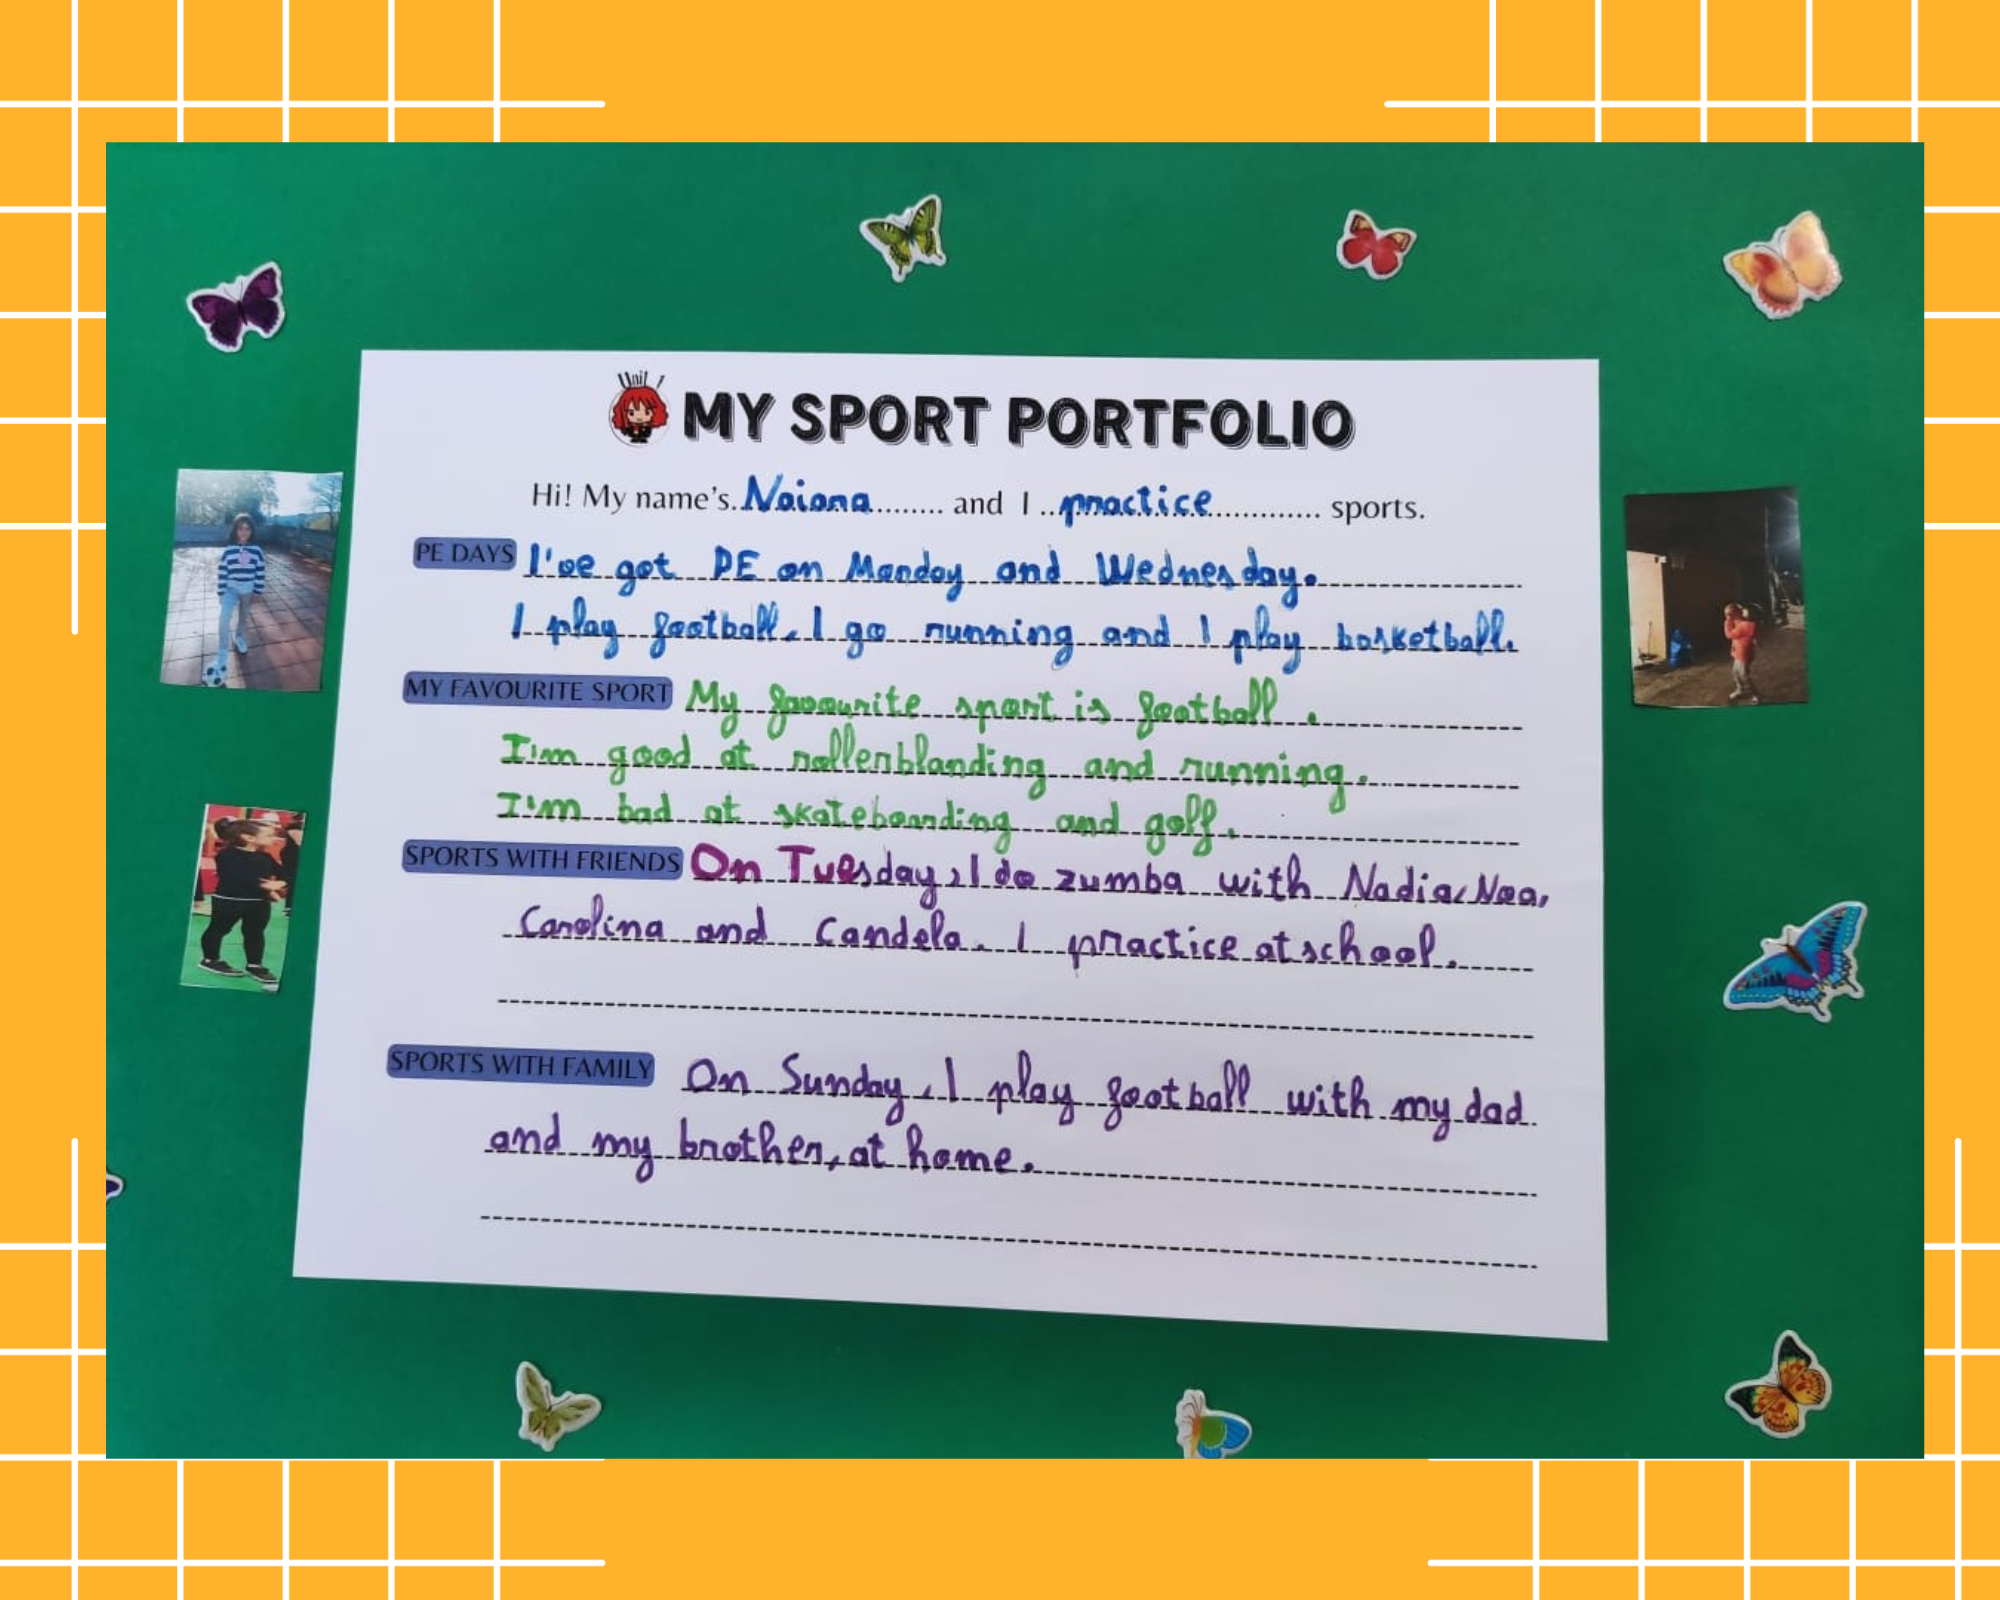 Unit 1
MY SPORT PORTFOLIO
Hi! My name's Naiana and I practice sports.
PE DAYS I've got PE on Monday and Wednesday.
I play football, I go running and I play basketball.
MY FAVOURITE SPORT My favourite sport is football.
I'm good at rollerblanding and running.
I'm bad at skateboarding and golf.
SPORTS WITH FRIENDS On Tuesday, I do zumba with Nadia, Noa,
Carolina and Candela. I practice at school.
SPORTS WITH FAMILY On Sunday, I play football with my dad
and my brother, at home.